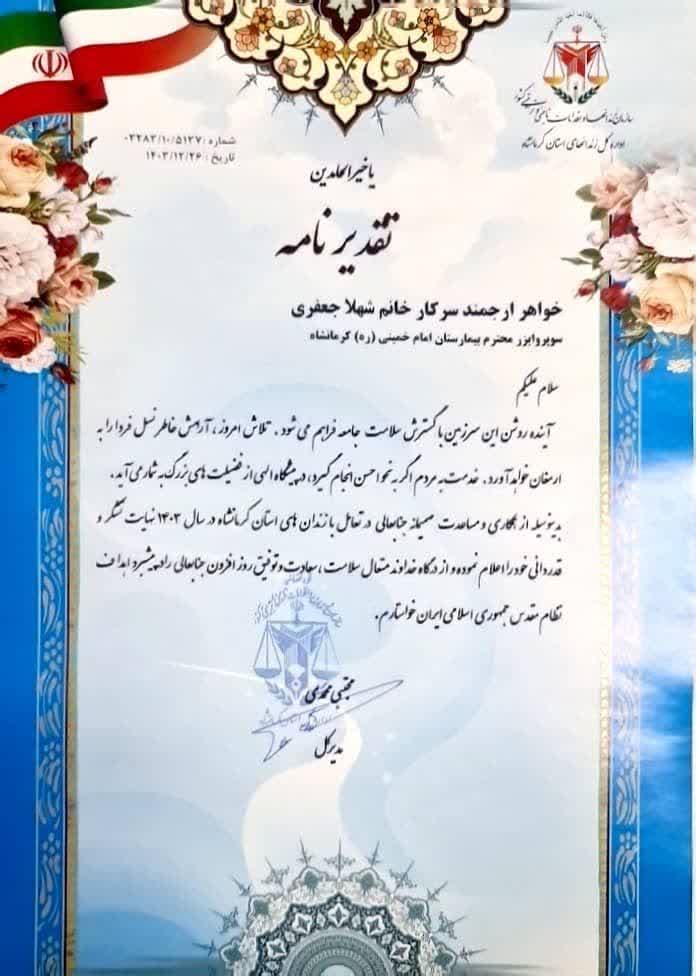 سازمان زندانها و اقدامات تامینی و تربیتی کشور
اداره کل زندانهای استان کرمانشاه
شماره : ۰۳۲۸۳/۱۰/۵۱۳۷
تاریخ : ۱۴۰۳/۱۲/۲۶
یا خیرالحامدین
تقدیرنامه
خواهر ارجمند سرکار خانم شهلا جعفری
سوپروایزر محترم بیمارستان امام خمینی (ره) کرمانشاه
سلام علیکم
آینده روشن این سرزمین با گسترش سلامت جامعه فراهم می شود . تلاش امروز ، آرامش خاطر نسل فردا را به
ارمغان خواهد آورد . خدمت به مردم اگر به نحو احسن انجام گیرد، در پیشگاه الهی از فضیلت های بزرگ به شمار می آید .
بدینوسیله از همکاری و مساعدت صمیمانه جنابعالی در تعامل با زندان های استان کرمانشاه در سال ۱۴۰۳ نهایت تشکر و
قدردانی خود را اعلام نموده و از درگاه خداوند متعال سلامت ، سعادت و توفیق روز افزون جنابعالی را در پیشبرد اهداف
نظام مقدس جمهوری اسلامی ایران خواستارم .
مجتبی محمدی
مدیرکل